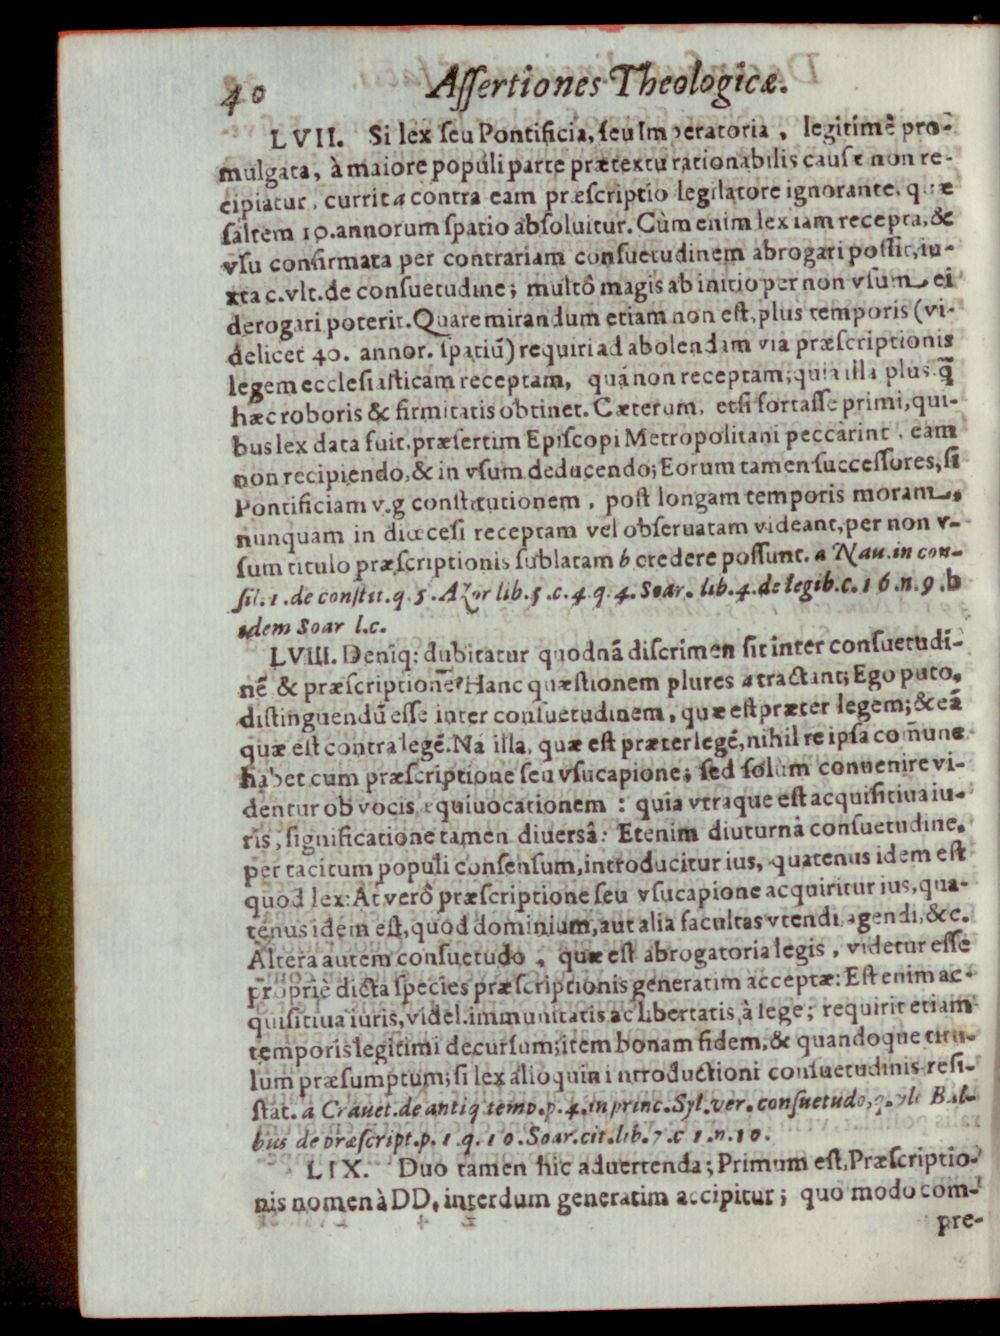 40 Assertiones Theologicæ.
LVII. Si lex seu Pontificia, seu Imperatoria, legitimè pro-
mulgata, à maiore populi parte prætextu rationabilis causæ non re-
cipiatur, currit a contra eam præscriptio legislatore ignorante, quæ
saltem 10. annorum spatio absoluitur. Cùm enim lex iam recepta, &
vsu confirmata per contrariam consuetudinem abrogari possit, iu-
xta c. vlt. de consuetudine; multô magis ab initio per non vsum ei
derogari poterit. Quare mirandum etiam non est, plus temporis (vi-
delicet 40. annor. spatiū) requiri ad abolendam via præscriptionis
legem ecclesiasticam receptam, quá non receptam; quia illa plus q̃
hæc roboris & firmitatis obtinet. Cæterum, etsi fortasse primi, qui-
bus lex data fuit, præsertim Episcopi Metropolitani peccârint, eam
non recipiendo, & in vsum deducendo; Eorum tamen successores, si
Pontificiam v.g constitutionem, post longam temporis moram,
nunquam in diœcesi receptam vel obseruatam videant, per non v-
sum titulo præscriptionis sublatam b credere possunt. a Nau. in con-
sil. 1. de constit. q. 5. Azor lib. 5. c. 4. q. 4. Soar. lib. 4. de legib. c. 16. n. 9. b
idem Soar l.c.
LVIII. Deniq; dubitatur quodnā discrimen sit inter consuetudi-
nē & præscriptionē? Hanc quæstionem plures a tractant; Ego puto,
distinguendū esse inter consuetudinem, quæ est præter legem; & eā
quæ est contra legē. Nā illa, quæ est præter legē, nihil re ipsa com̄une
habet cum præscriptione seu vsucapione; sed solùm conuenire vi-
dentur ob vocis æquiuocationem: quia vtraque est acquisitiua iu-
ris, significatione tamen diuersâ: Etenim diuturnâ consuetudine,
per tacitum populi consensum, introducitur ius, quatenus idem est
quod lex: At verô præscriptione seu vsucapione acquiritur ius, qua-
tenus idem est, quod dominium, aut alia facultas vtendi, agendi, &c.
Altera autem consuetudo, quæ est abrogatoria legis, videtur esse
propriè dicta species præscriptionis generatim acceptæ: Est enim ac-
quisitiua iuris, videl. immunitatis ac libertatis à lege; requirit etiam
temporis legitimi decursum; item bonam fidem, & quandoque titu-
lum præsumptum; si lex alioquin introductioni consuetudinis resi-
stat. a Crauet. de antiq temp. p. 4. in princ. Syl. ver. consuetudo, q. vlt Bal-
bus de præscript. p. 1. q. 10. Soar. cit. lib. 7. c 1. n. 10.
LIX. Duo tamen hic aduertenda; Primum est, Præscriptio-
nis nomen à DD, interdum generatim accipitur; quo modo com-
pre-